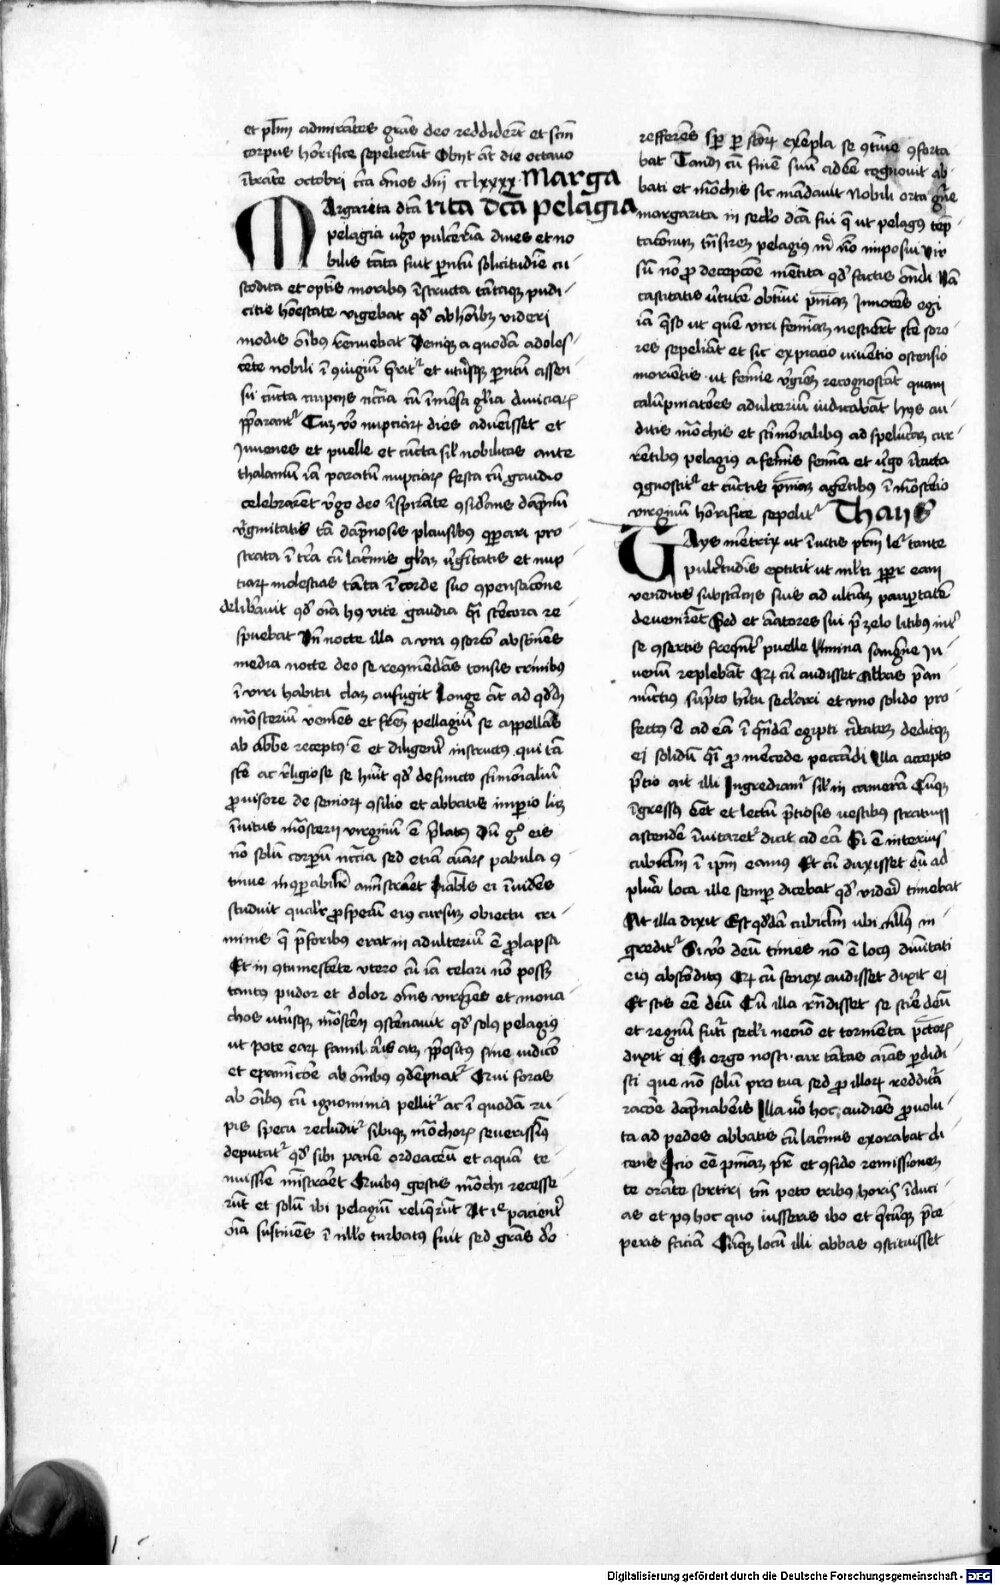 et plim admirates gras deo reddidert et scm
corpus honrifice sepelierut Obyt at die octavo
ibrate octobri circa anos dni cc lxxxx Marga
rita dca pelagia
Margareta dcta
pelagia virgo pulcerrima dives et no
bilis tata fuit parentu solicitudie cu
stodita et optis moribus istructa tataqz pudi
citie honestate vigebat qd ab hominibz videri
modis omibus rennuebat Deniqz a quoda adoles
cete nobili i coniugiu querit et utriusqz parentu assen
su cuncta nupciis necessaria cu imesa gloria diviciarum
preparantur Cuqz vero nupciarum dies advenisset et
Juvenes et puelle et cuncta simul nobilitas ante
thalamu iam paratu nupciarum festa cu gaudio
celebrarent virgo deo ispirate considerans dampnu
virginitatis tam dampnosis plausibus comparari pro
strata i terra cu lacrimis gloriam virginitatis et nup
tiarum molestias tanta i corde suo compensacione
deliberavit qd oia huius vite gaudia quasi stercora re
spuebat Un nocte illa a viri consorcio abstinens
media nocte deo se recomendans tonsis crinibus
i viri habitu clam aufugit Longe aut ad quoddam
monasterium veniens et fratrem pellagium se appellans
ab abbate receptus e et diligenter instructus qui tam
sancte ac religiose se habuit qd defuncto sanctimonialium
provisore de seniorum consilio et abbatis imperio licet
invitus monasterii virginum e prelatus Dum ergo eis
no solu corporum necessaria sed etiam animarum pabula con
tinue inculpabiliter ministraret Diabolus ei invidens
studuit qualiter prosperum eius cursum obiectu cri
minis que pre foribus erat in adulterium e prolapsa
Et in contumescente utero cu iam celari no posset
tantus pudor et dolor omnes virgines et mona
chos utriusqz monasterii consternavit qd solus pelagius
ut pote earum familiaris atqz prepositus sine iudicio
et examinacione ab omnibus condempnatur Qui foras
ab omnibus cu ignominia pellitur ac i quodam ru
pis specu recluditur sibiqz monachorum severissimus
deputatur qd sibi panem ordeaceum et aquam te
nuissime ministraret Quibus gestis monachi recesse
runt et solum ibi pelagium reliquerunt At ipse pacienter
oia sustinens i nullo turbatus fuit sed gras deo
refferens semper per sanctorum exempla se continue conforta
bat Tandem cu finem suum adesse cognovit ab
bati et monachis sic mandavit Nobili orta genere
margarita in seculo dicta fui que ut pelagus temp
tacionum transirem pelagius mihi nomen imposui vir
sum no pro decepcione mentita qd factis ostendi Nam
castitatis virtutem obtinui penitenciam innocens egi
iam queso ut quem viri feminam nescierunt sancte soro
res sepeliant et sic expiacio viventis ostensio
morientis ut femine virginem recognoscant quam
calumpniatores adulterum iudicabant Hiis au
ditis monachis et sanctimonialibus ad speluncam cur
rentibus pelagius a feminis femina et virgo intacta
cognoscitur et cunctis penitenciam agentibus i monasterio
virginum honorifice sepelitur Thays
Thays meretrix ut i vitis patrum legitur tante
pulcritudinis extitit ut multi propter eam
venditis substanciis suis ad ultimam paupertatem
devenirent Sed et amatores sui pre zelo litibus inter
se consertis frequenter puelle limina sanguine iu
venum replebant Quod cum audisset Abbas pam
nuncius sumpto habitu seculari et uno solido pro
fectus e ad eam i quandam egipti civitatem deditqz
ei solidum quasi pro mercede peccandi Illa accepto
precio ait illi Ingrediamur simul in cameram Cumqz
ingressus esset et lectum preciosis vestibus stratum
ascendere invitaretur dicit ad eam Si e interius
cubiculum i ipsum eamus Et cu duxisset eum ad
plura loca ille semper dicebat qd videri timebat
At illa dixit Est quoddam cubiculum ubi nullus in
greditur Si vero deum times no e locus divinitati
eius absconditus Quod cum senex audisset dixit ei
Et scis esse deum Cum illa respondisset se scire deum
et regnum futuri seculi necnon et tormenta peccatorum
dixit ei Si ergo nosti cur tantas animas perdidi
sti que non solum pro tua sed pro illorum redditura
racionem dampnaberis Illa vero hoc audiens provolu
ta ad pedes abbatis cum lacrimis exorabat di
cens Scio esse penitenciam pater et confido remissionem
te orante sortiri tantum peto tribus horis induci
as et post hoc quo iusseris ibo et quecumqz prece
peris faciam Cumqz locum illi abbas constituisset
Digitalisierung gefördert durch die Deutsche Forschungsgemeinschaft - DFG